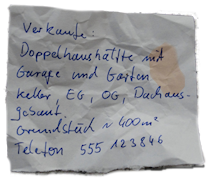 Verkaufe:
Doppelhaushälfte mit
Garage und Garten
Keller, EG, OG, Dachaus-
gebaut.
Grundstück ~ 400m²
Telefon 555 123846